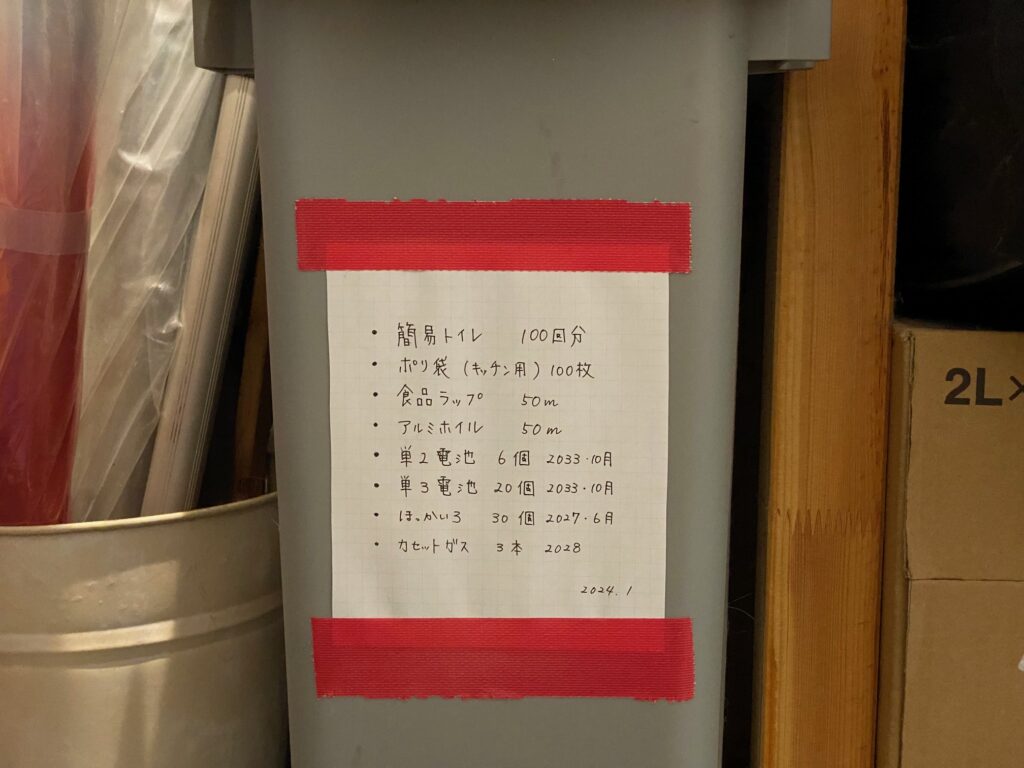 ・簡易トイレ 100回分
・ポリ袋 (キッチン用) 100枚
・食品ラップ 50m
・アルミホイル 50m
・単2電池 6個 2033・10月
・単3電池 20個 2033・10月
・ほっかいろ 30個 2027・6月
・カセットガス 3本 2028
2024.1
2L×